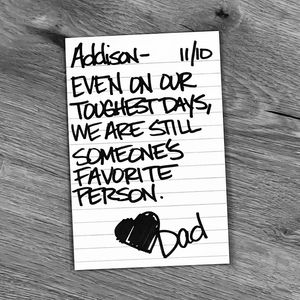 Addison- 11/10
EVEN ON OUR
TOUGHEST DAYS,
WE ARE STILL
SOMEONE'S
FAVORITE
PERSON.
Dad